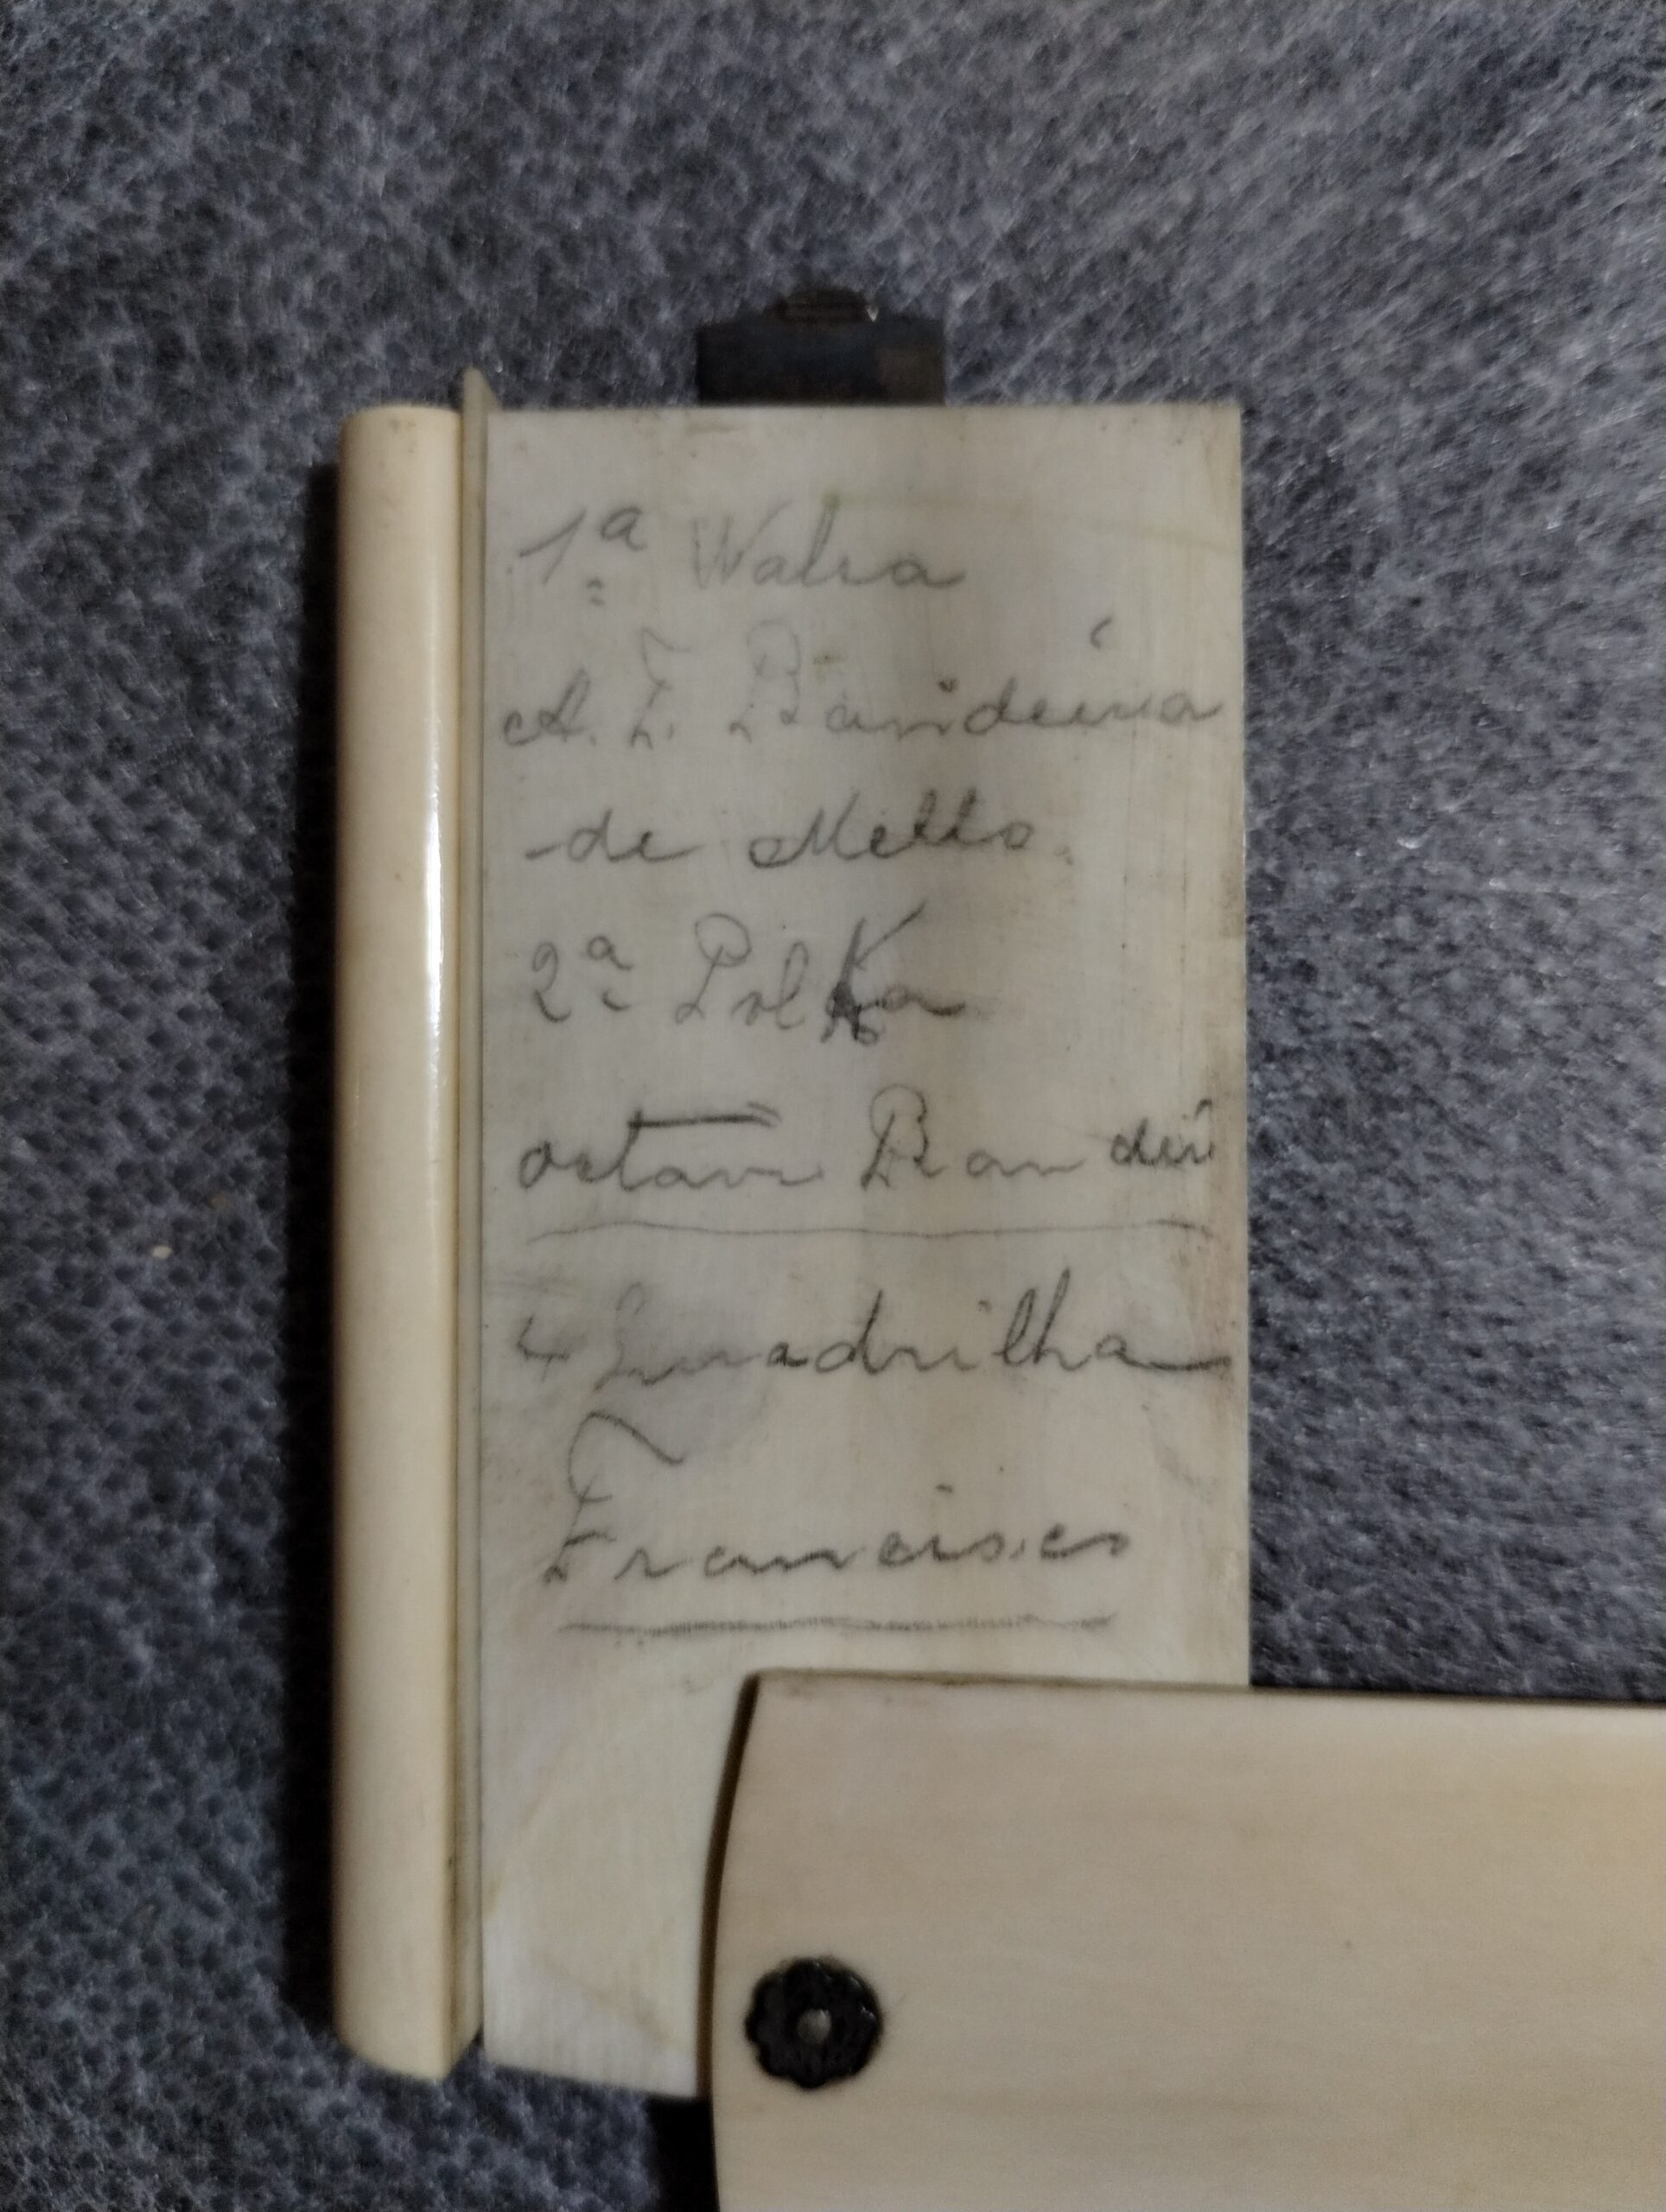 1ª Walsa
A. F. Bandeira
de Mello.
2ª Polka
octavi Bandei
4 Quadrilha
Francisco